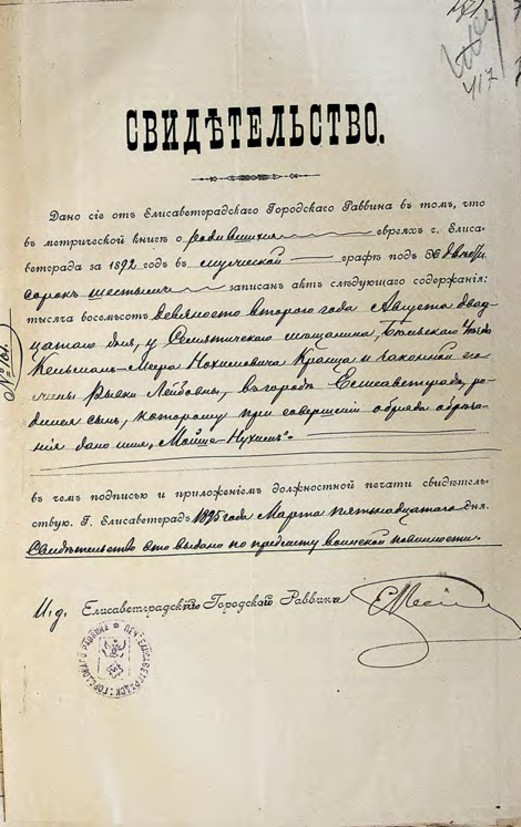 417
СВИДѢТЕЛЬСТВО.
Дано сіе отъ Елисаветградскаго Городскаго Раввина въ томъ, что
въ метрической книгѣ о родившихся евреяхъ г. Елиса-
ветграда за 1892 годъ въ мужеской графѣ подъ №
сорокъ шестымъ записанъ актъ слѣдующаго содержанія:
тысяча восемьсотъ девяносто второго года Августа двад-
цатаго дня, у мѣщанина,
Кельмана-Меера Нохимовича и законной его
жены Рывки Лейбовны, въ городѣ Елисаветградѣ, ро-
дился сынъ, которому при совершеніи обряда обрѣза-
нія дано имя „Мойше-Нухимъ“.
въ чемъ подписью и приложеніемъ должностной печати свидѣтель-
ствую. Г. Елисаветградъ 1895 года Марта пятьнадцатаго дня.
Свидѣтельство это выдано по предмету воинской повинности.
И. д. Елисаветградскій Городской Раввинъ
№ 161.